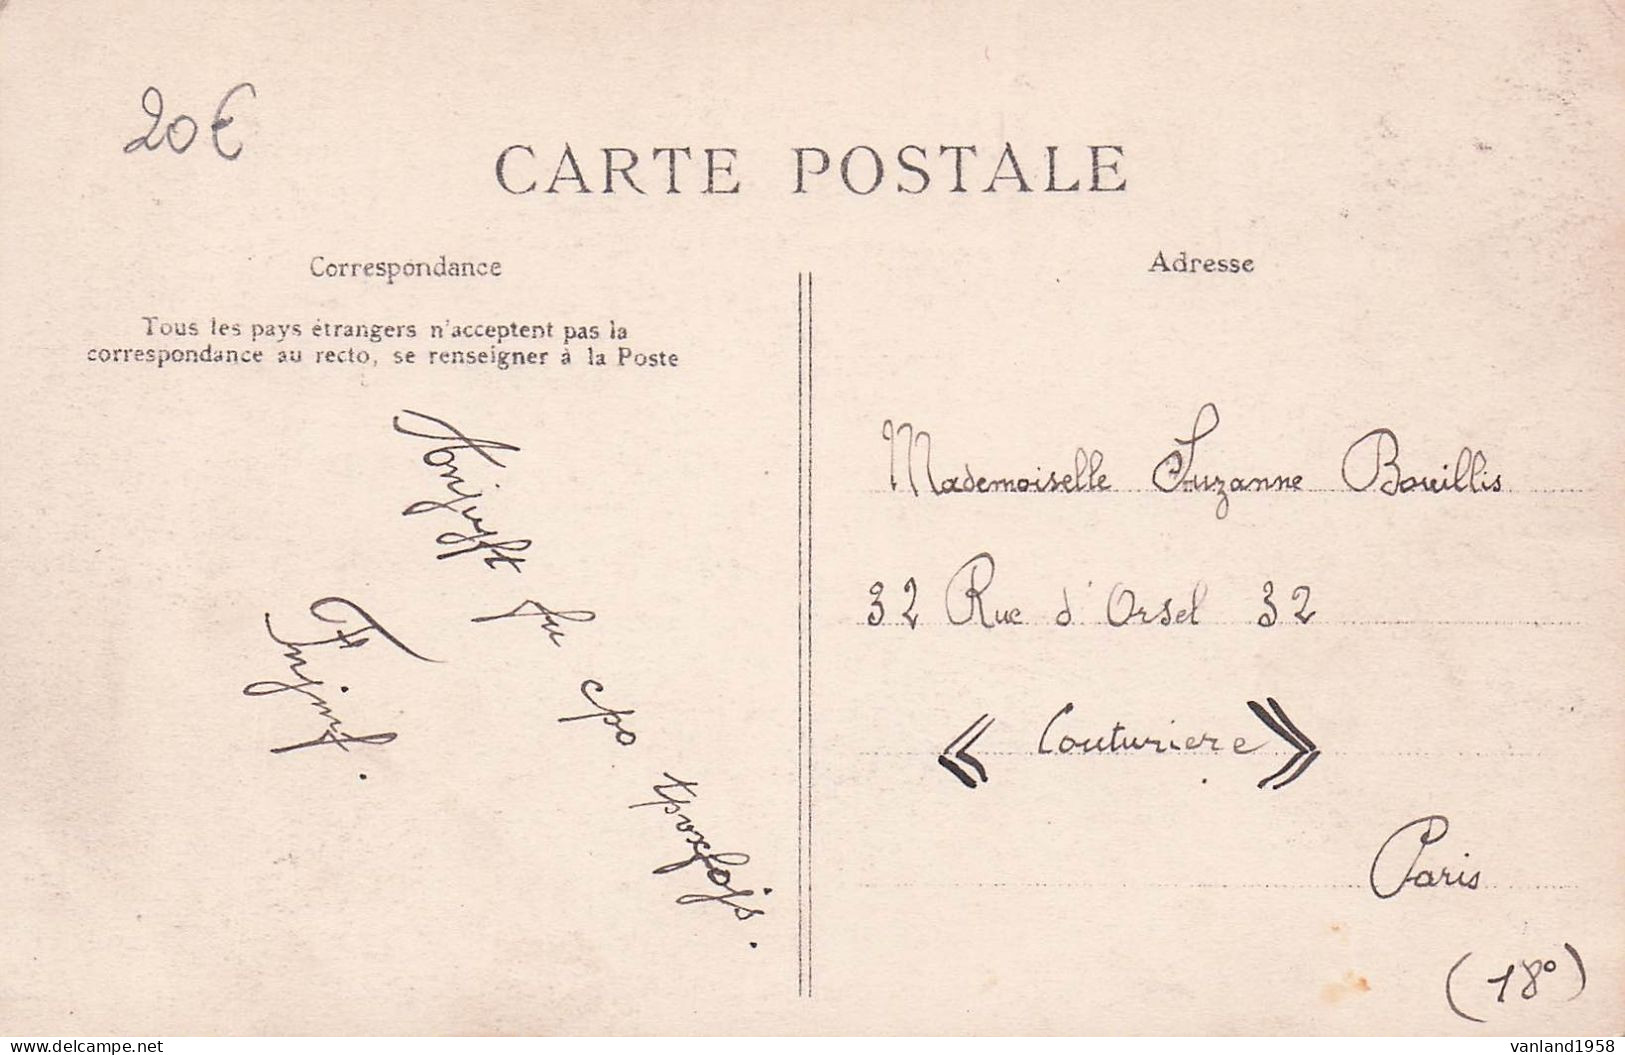 20€
CARTE POSTALE
Correspondance
Tous les pays étrangers n'acceptent pas la
correspondance au recto, se renseigner à la Poste
fu
cpo
Adresse
Mademoiselle Suzanne Bouillis
32 Rue d'Orsel 32
« Couturiere »
Paris
(18°)
vanland1958